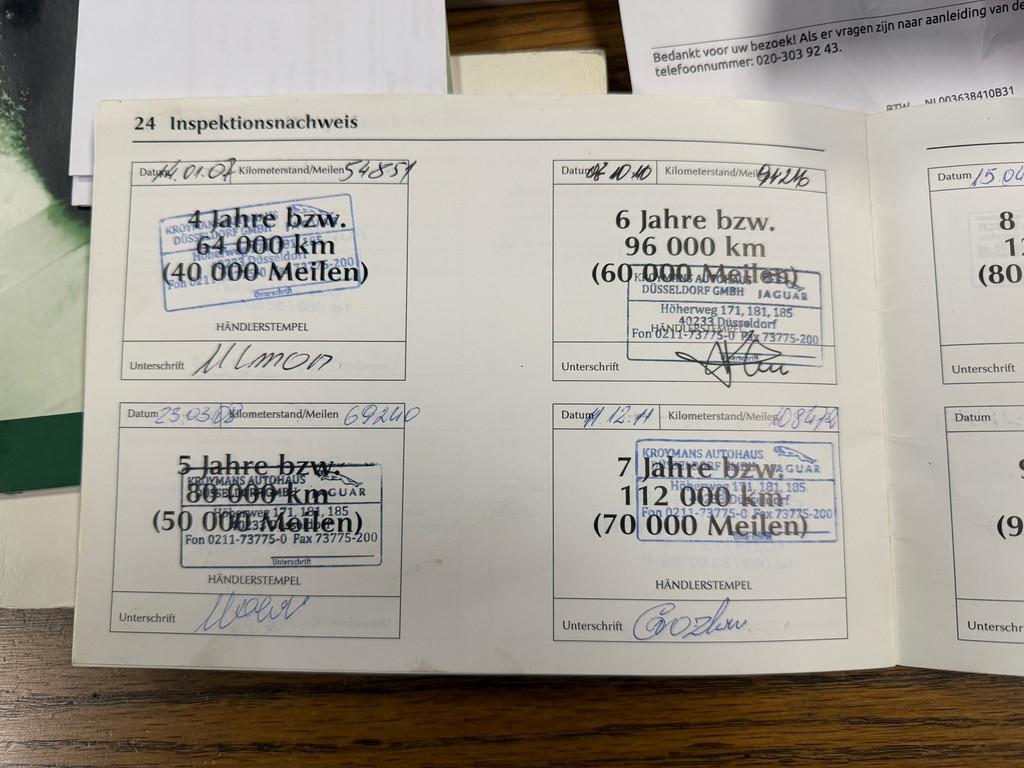 Bedankt voor uw bezoek! Als er vragen zijn naar aanleiding van de
telefoonnummer: 020-303 92 43.
BTW NL003638410B31
24 Inspektionsnachweis
Datum 14.01.07 Kilometerstand/Meilen 54851
4 Jahre bzw.
64 000 km
(40 000 Meilen)
KROYMANS AUTOHAUS
DÜSSELDORF GMBH
Höherweg
40233 Düsseldorf
Fon 0211-73775-0 Fax 73775-200
Unterschrift
HÄNDLERSTEMPEL
Unterschrift
Datum 23.03.08 Kilometerstand/Meilen 69240
5 Jahre bzw.
80 000 km
(50 000 Meilen)
KROYMANS AUTOHAUS
DÜSSELDORF GMBH JAGUAR
Höherweg 171, 181, 185
40233 Düsseldorf
Fon 0211-73775-0 Fax 73775-200
Unterschrift
HÄNDLERSTEMPEL
Unterschrift
Datum 10.10 Kilometerstand/Meilen
6 Jahre bzw.
96 000 km
(60 000 Meilen)
KROYMANS AUTOHAUS
DÜSSELDORF GMBH JAGUAR
Höherweg 171, 181, 185
40233 Düsseldorf
Fon 0211-73775-0 Fax 73775-200
Unterschrift
HÄNDLERSTEMPEL
Unterschrift
Datum 11.12.11 Kilometerstand/Meilen
7 Jahre bzw.
112 000 km
(70 000 Meilen)
KROYMANS AUTOHAUS
DÜSSELDORF GMBH JAGUAR
Höherweg 171, 181, 185
40233 Düsseldorf
Fon 0211-73775-0 Fax 73775-200
Unterschrift
HÄNDLERSTEMPEL
Unterschrift
Datum 15.04
8
(80
Unterschrift
Datum
(9
Unterschr